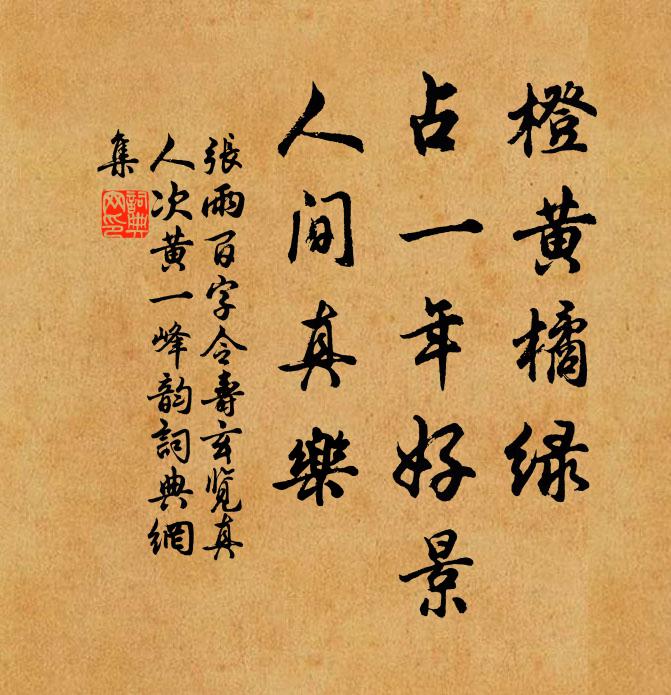 橙黄橘绿
占一年好景
人间真樂
張雨百字令壽玄覽真
人次黄一峰韵詞典網
集
詞典網印